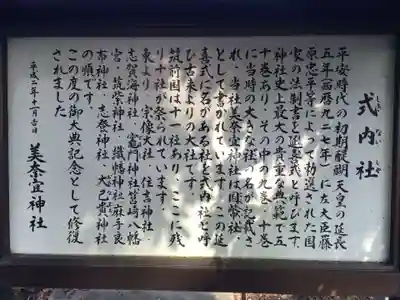 式内社
しきないしゃ
平安時代の初期醍醐天皇の延長
五年(西暦九二七年)に左大臣藤
原忠平等によって勅選された国
家の法制書を延喜式と呼びます。
神社史上最大の貴重な典範で五
十巻あり、その中の九巻、十巻
に当時の大きな社の名が記載さ
れ、当社美奈宜神社は国幣社、
として書かれています。この延
喜式に名がある社を式内社と呼
び古来よりの大社です。
筑前国は十一社あり、ここに残
り十社が祭られています。
東より、宗像大社・住吉神社・
志賀海神社・竈門神社筥崎八幡
宮・筑紫神社・織幡神社麻手良
布神社・志登神社・大己貴神社
の順です。
この度の御大典記念として修復
されました
平成二年十一月吉日
美奈宜神社